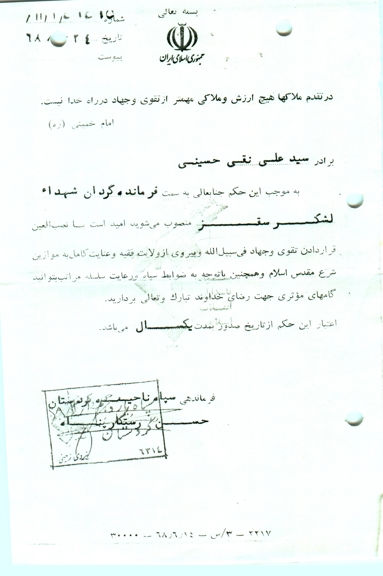 بسمه تعالی
شماره
تاریخ
پیوست
جمهوری اسلامی ایران
در تقدم ملاکها هیچ ارزش و ملاکی مهمتر از تقوی و جهاد در راه خدا نیست.
امام خمینی (ره)
برادر سید علی نقی حسینی
به موجب این حکم جنابعالی به سمت فرمانده گردان شهداء
لشکر سقز منصوب می‌شوید امید است با نصب‌العین
قراردادن تقوی وجهاد فی‌سبیل‌الله و پیروی از ولایت فقیه و عنایت کامل به موازین
شرع مقدس اسلام وهمچنین باتوجه به ضوابط سپاه ورعایت سلسله مراتب بتوانید
گامهای مؤثری جهت رضای خداوند تبارک وتعالی بردارید.
اعتبار این حکم از تاریخ صدور بمدت یکسال می‌باشد.
فرماندهی سپاه ناحیه کردستان
حسن رستگارپناه
کردستان
نیروی زمینی
۲۲۱۷ – ۳/س – ۶۸٫۶٫۱۵ – ۳۰۰۰۰